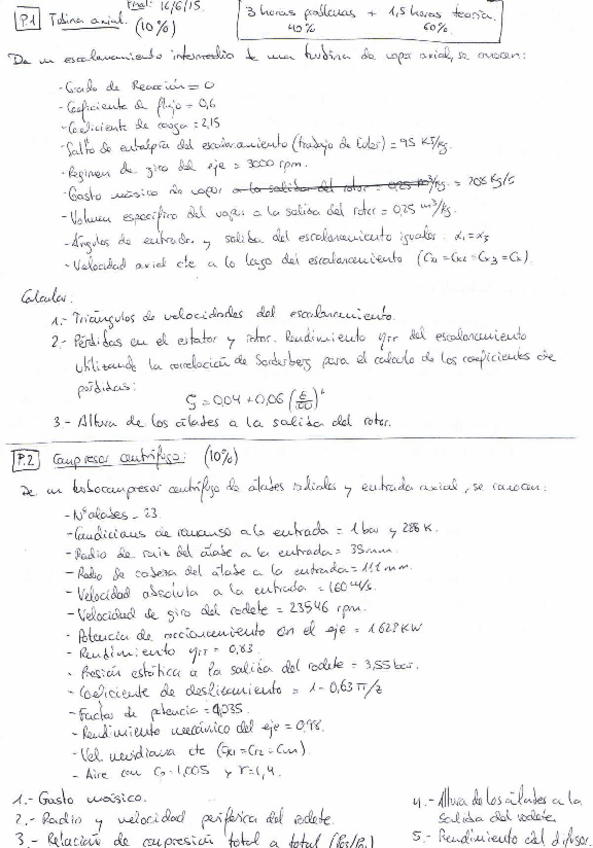 Final: 16/6/15.
P.1 Turbina axial. (10%)
3 horas problemas + 1,5 horas teoría.
40% 60%
De un escalonamiento intermedio de una turbina de vapor axial, se conocen:
- Grado de Reacción = 0
- Coeficiente de flujo = 0,6
- Coeficiente de carga = 2,15
- Salto de entalpía del escalonamiento (trabajo de Euler) = 95 KJ/kg.
- Régimen de giro del eje = 3000 rpm.
- Gasto másico de vapor a la salida del rotor = 0,25 m³/kg. = 208 kg/s
- Volumen específico del vapor a la salida del rotor = 0,25 m³/kg.
- Ángulos de entrada y salida del escalonamiento iguales: α₁ = α₃
- Velocidad axial cte a lo largo del escalonamiento (Cx₁ = Cx₂ = Cx₃ = Cx)
Calcular:
1.- Triángulos de velocidades del escalonamiento.
2.- Pérdidas en el estator y rotor. Rendimiento ηTT del escalonamiento
utilizando la correlación de Soderberg para el cálculo de los coeficientes de
pérdidas:
ζ = 0,04 + 0,06 (ε/100)²
3.- Altura de los álabes a la salida del rotor.
P.2 Compresor centrífugo: (10%)
De un turbocompresor centrífugo de álabes radiales y entrada axial, se conocen:
- Nº álabes = 23.
- Condiciones de remanso a la entrada = 1 bar y 288 K.
- Radio de raíz del álabe a la entrada = 35 mm.
- Radio de cabeza del álabe a la entrada = 111 mm.
- Velocidad absoluta a la entrada = 160 m/s.
- Velocidad de giro del rodete = 23546 rpm.
- Potencia de accionamiento en el eje = 1628 KW
- Rendimiento ηTT = 0,83.
- Presión estática a la salida del rodete = 3,55 bar.
- Coeficiente de deslizamiento = 1 - 0,63 π/z
- Factor de potencia = 1,035.
- Rendimiento mecánico del eje = 0,98.
- Vel. meridiana cte (Cx₁ = Cr₂ = Cm).
- Aire con cp = 1,005 y γ = 1,4.
1.- Gasto másico.
2.- Radio y velocidad periférica del rodete.
3.- Relación de compresión total a total
4.- Altura de los álabes a la
salida del rodete
5.- Rendimiento del difusor.